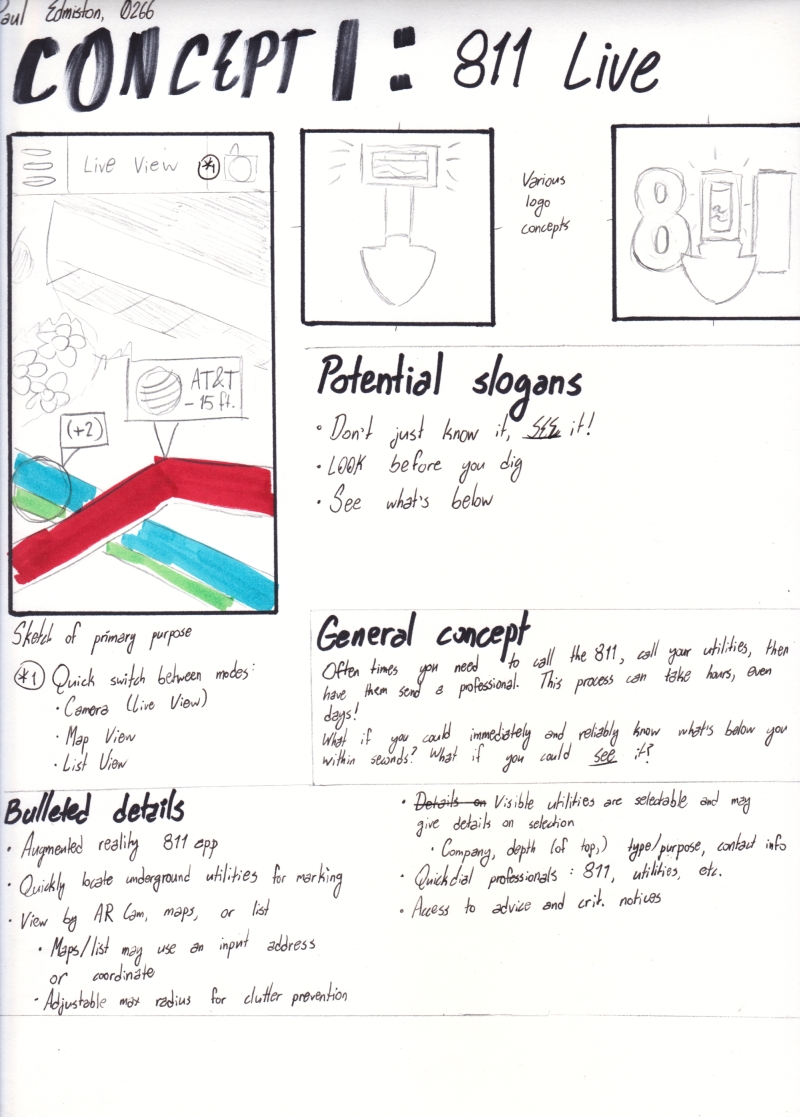 Paul Edmiston, 0266
CONCEPT 1: 811 Live
Live View *1
AT&T
- 15 ft.
(+2)
Sketch of primary purpose
*1 Quick switch between modes:
· Camera (Live View)
· Map View
· List View
Various
logo
concepts
8
Potential slogans
· Don't just know it, SEE it!
· LOOK before you dig
· See what's below
General concept
Often times you need to call the 811, call your utilities, then
have them send a professional. This process can take hours, even
days!
What if you could immediately and reliably know what's below you
within seconds? What if you could see it?
Bulleted details
· Augmented reality 811 app
· Quickly locate underground utilities for marking
· View by AR Cam, maps, or list
· Maps/list may use an input address
or coordinate
· Adjustable max radius for clutter prevention
· Details on Visible utilities are selectable and may
give details on selection
· Company, depth (of top,) type/purpose, contact info
· Quickdial professionals: 811, utilities, etc.
· Access to advice and crit. notices